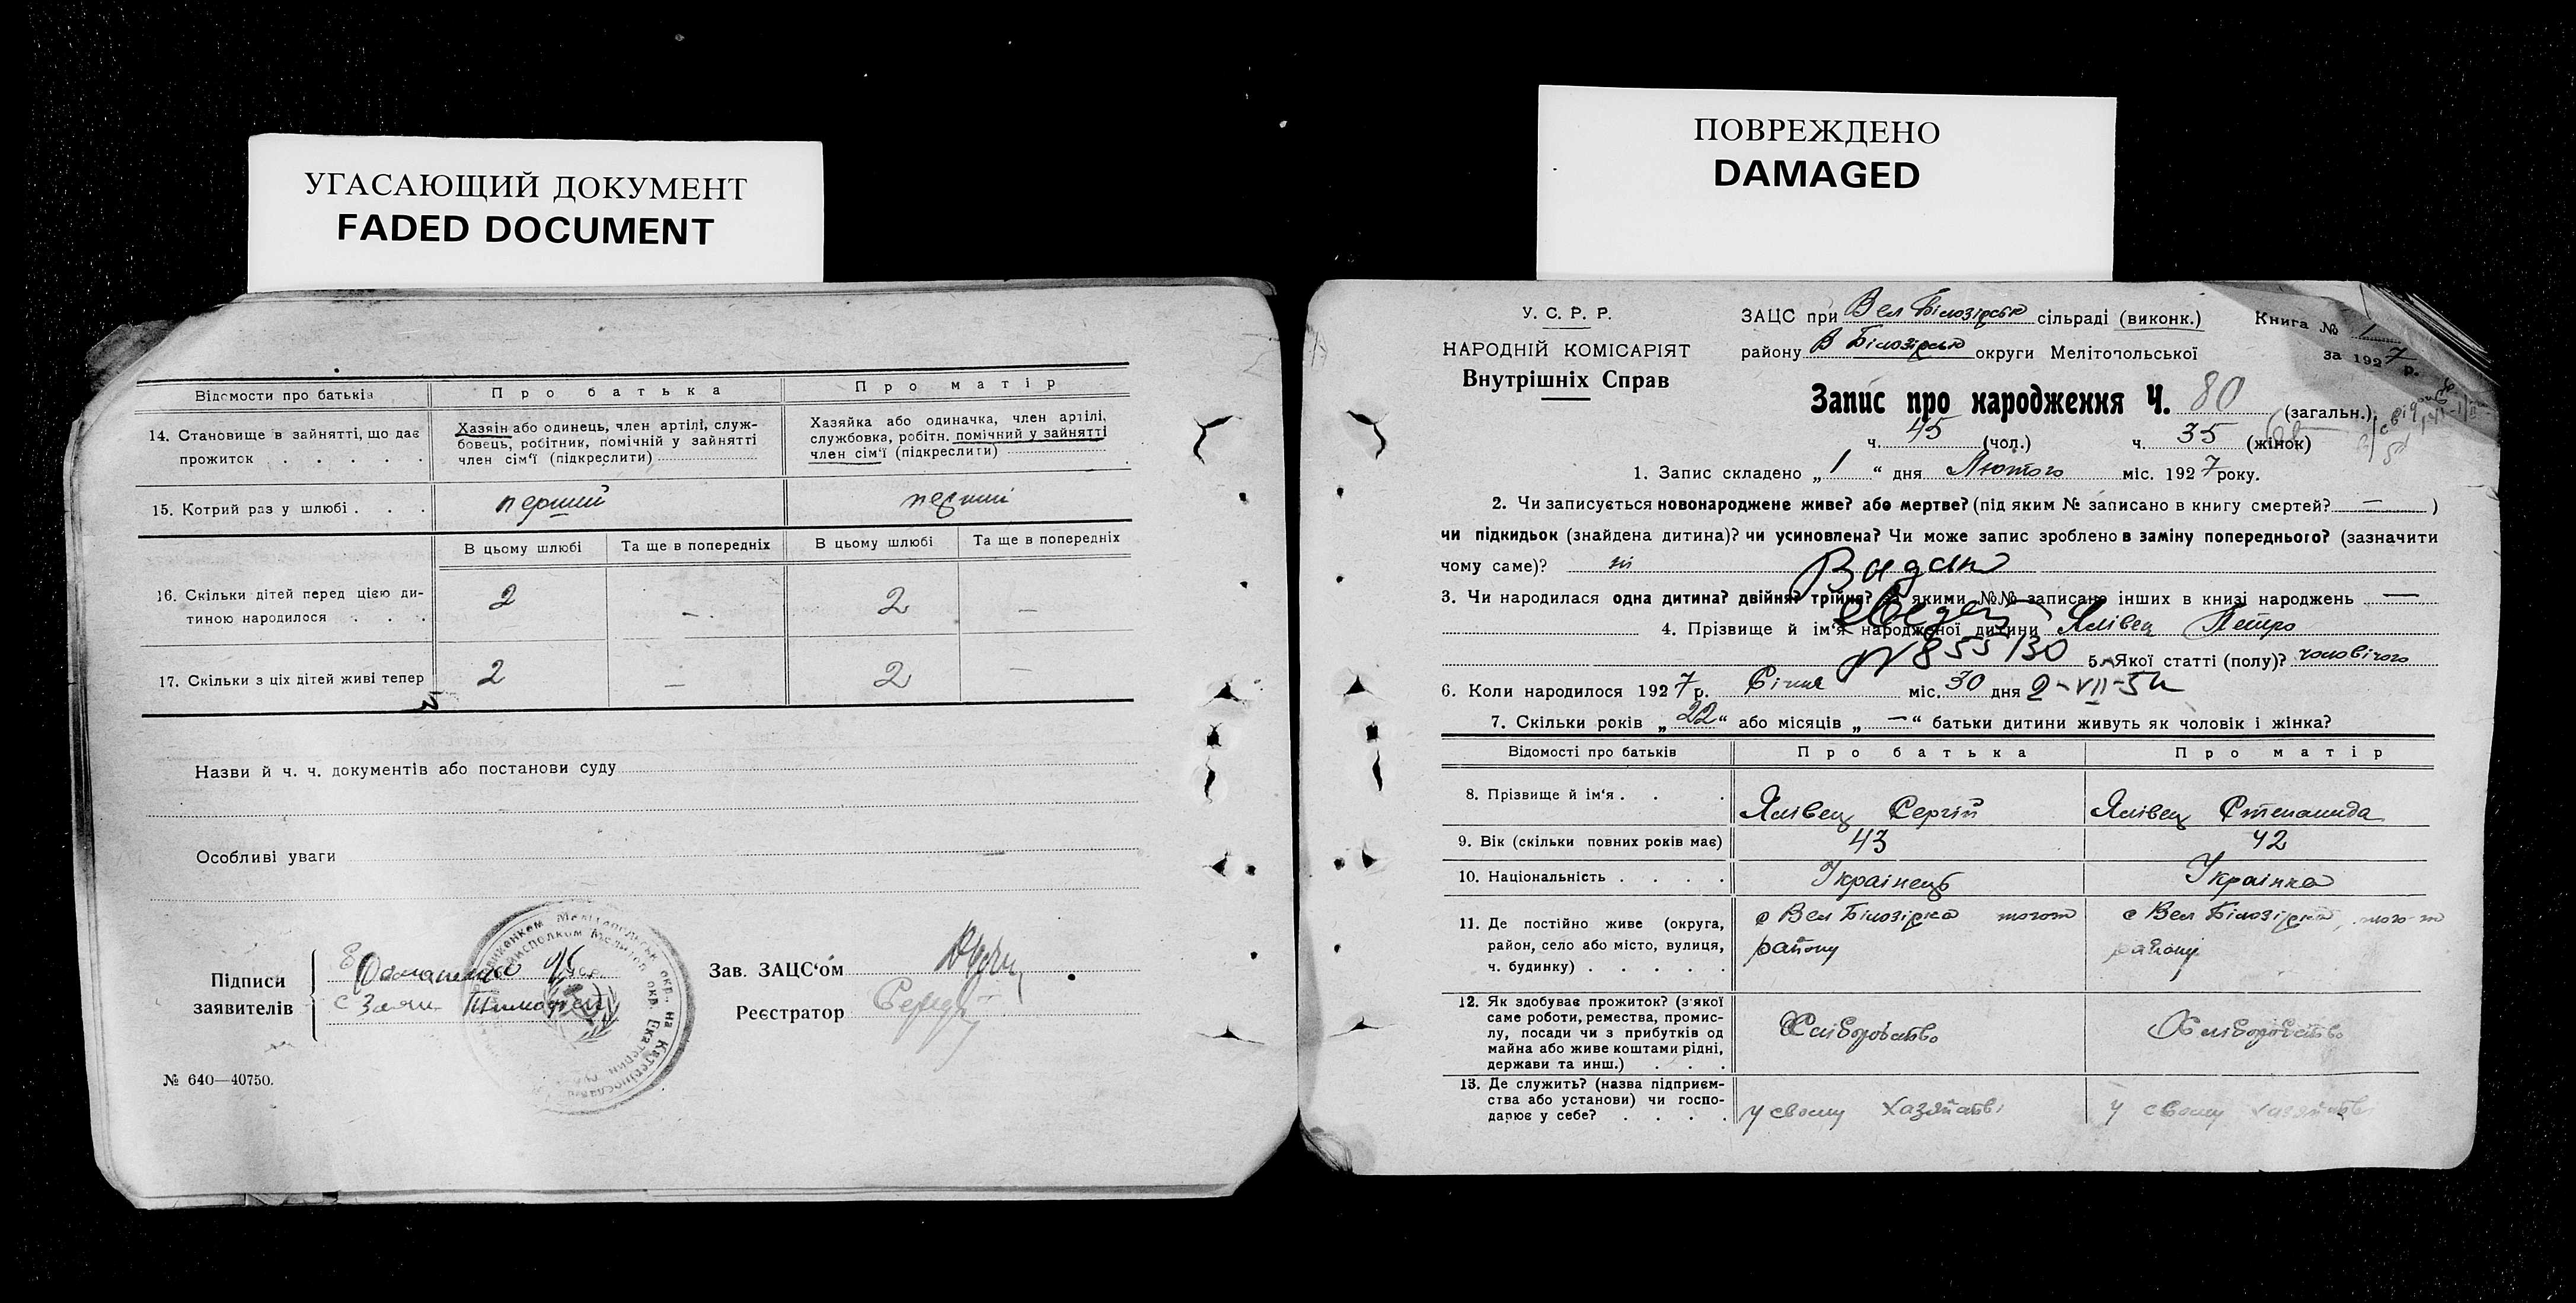 УГАСАЮЩИЙ ДОКУМЕНТ
FADED DOCUMENT
Відомости про батьків
Про батька
Про матір
14. Становище в зайнятті, що дає прожиток . . . . .
Хазяїн або одинець, член артілі, служ-
бовець, робітник, помічній у зайнятті
член сім'ї (підкреслити)
Хазяйка або одиначка, член артілі,
службовка, робітн. помічний у зайнятті
член сім'ї (підкреслити)
15. Котрий раз у шлюбі . . .
перший
перший
В цьому шлюбі
Та ще в попередніх
В цьому шлюбі
Та ще в попередніх
16. Скільки дітей перед цією ди-
тиною народилося . . .
2 — 2 —
17. Скільки з ціх дітей живі тепер
2 — 2 —
Назви й ч. ч. документів або постанови суду
Особливі уваги —
Підписи
заявителів
Зав. ЗАЦС'ом
Реєстратор
№ 640—40750.
ПОВРЕЖДЕНО
DAMAGED
У. С. Р. Р.
НАРОДНІЙ КОМІСАРІЯТ
Внутрішніх Справ
ЗАЦС при Вел Білозірськ сільраді (виконк.)
Книга № 1
району В Білозірсько округи Мелітопольської
за 1927 р.
Запис про народження Ч. 80 (загальн.).
ч. 45 (чол.) ч. 35 (жінок)
1. Запис складено „1“ дня Лютого міс. 1927 року.
2. Чи записується новонароджене живе? або мертве? (під яким № записано в книгу смертей? — )
чи підкидьок (знайдена дитина)? чи усиновлена? Чи може запис зроблено в заміну попереднього? (зазначити
чому саме)? ні
Видан
3. Чи народилася одна дитина? двійня? трійня? за якими №№ записано інших в книзі народжень —
4. Прізвище й ім'я народженої дитини Ялівец Петро
№ 855130
5. Якої статті (полу)? чоловічого
6. Коли народилося 1927 р. Січня міс. 30 дня 2-VII-54
7. Скільки років „22“ або місяців „—“ батьки дитини живуть як чоловік і жінка?
Відомості про батьків
Про батька
Про матір
8. Прізвище й ім'я . . .
Ялівец Сергій
Ялівец Степанида
9. Вік (скільки повних років має)
43
42
10. Національність . . . .
Українець
Українка
11. Де постійно живе (округа,
район, село або місто, вулиця,
ч. будинку) . . . . .
с Вел Білозірка того ж
району
с Вел Білозірка, того-ж
району
12. Як здобуває прожиток? (з'якої
саме роботи, ремества, промис-
лу, посади чи з прибутків од
майна або живе коштами рідні,
держави та инш.) . . .
Хліборобство
Хліборобство
13. Де служить? (назва підприєм-
ства або установи) чи госпо-
дарює у себе? . . . .
у своему хазяйстві
у своему хазяйстві